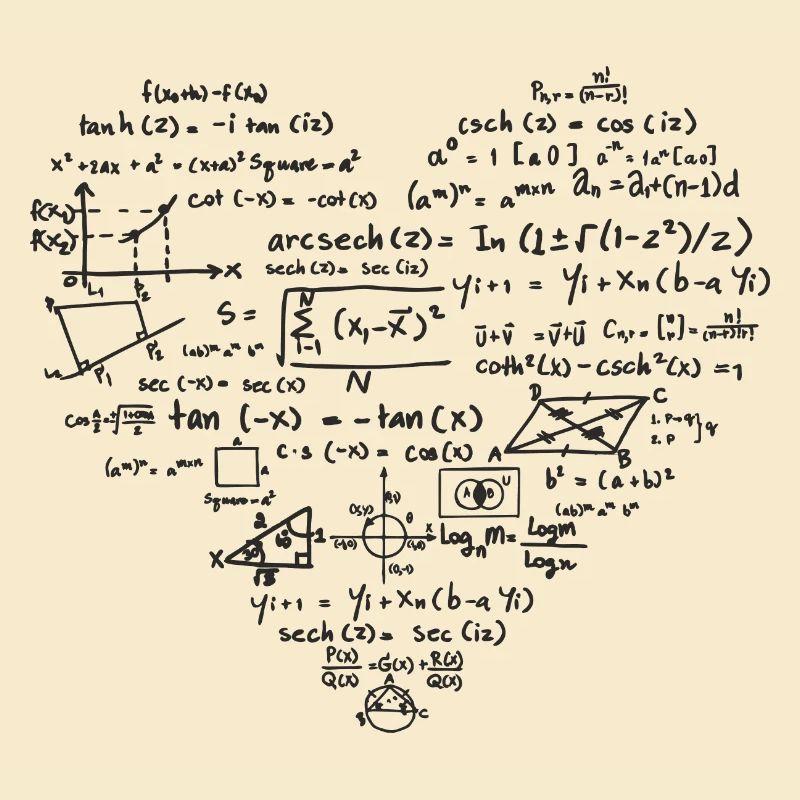 f(x₀+h)-f(x₀)
Pn,r = n!/(n-r)!
tanh (z) = -i tan (iz)
csch (z) = cos (iz)
x² + 2ax + a² = (x+a)² Square = a²
a⁰ = 1 [a 0] a⁻ⁿ = 1aⁿ [a 0]
cot (-x) = -cot (x)
(aᵐ)ⁿ = aᵐˣⁿ
an = a1+(n-1)d
f(x₁)
f(x₂)
0
x
L1
P2
arcsech (z) = In (1±√(1-z²)/z)
sech (z) = sec (iz)
yi+1 = yi + xn (b-a yi)
S = √ N Σ i-1 (x₁-x̄)² / N
P'2
P'1
(ab)ᵐ aᵐ bᵐ
u⃗+v⃗ = v⃗+u⃗
Cn,r = [n r] = n!/(n-r)!r!
coth²(x) - csch²(x) = 1
sec (-x) = sec (x)
tan (-x) = -tan (x)
D
C
A
B
1. P→q
2. P
q
(aᵐ)ⁿ = aᵐˣⁿ
a
a
Square = a²
c·s (-x) = cos (x)
A
B
U
b² = (a+b)²
(ab)ᵐ aᵐ bᵐ
2
1
X
30°
(x,y)
θ
x
(-1,0)
(1,0)
(0,-1)
Lognm = Logm/Logn
yi+1 = yi + xn (b-a yi)
sech (z) = sec (iz)
P(x)/Q(x) = G(x) + R(x)/Q(x)
A
B
C